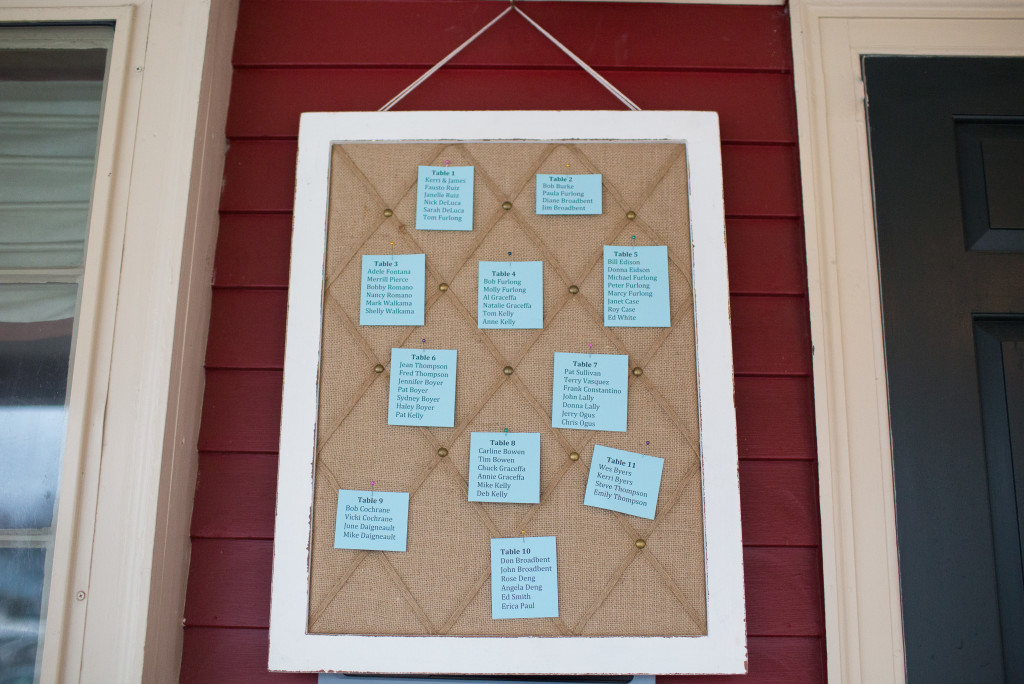 Table 1
Kerri & James
Fausto Ruiz
Janelle Ruiz
Nick DeLuca
Sarah DeLuca
Tom Furlong
Table 2
Bob Burke
Paula Furlong
Diane Broadbent
Jim Broadbent
Table 3
Adele Fontana
Merrill Pierce
Bobby Romano
Nancy Romano
Mark Walkama
Shelly Walkama
Table 4
Bob Furlong
Molly Furlong
Al Graceffa
Natalie Graceffa
Tom Kelly
Anne Kelly
Table 5
Bill Edson
Donna Edson
Michael Furlong
Peter Furlong
Marcy Furlong
Janet Case
Roy Case
Ed White
Table 6
Jean Thompson
Fred Thompson
Jennifer Boyer
Pat Boyer
Sydney Boyer
Haley Boyer
Pat Kelly
Table 7
Pat Sullivan
Terry Vasquez
Frank Constantino
John Lally
Donna Lully
Jerry Ogus
Chris Ogus
Table 8
Carline Bowen
Tim Bowen
Chuck Graceffa
Annie Graceffa
Mike Kelly
Deb Kelly
Table 11
Wes Byers
Kerri Byers
Steve Thompson
Emily Thompson
Table 9
Bob Cochrane
Vicki Cochrane
June Daigneault
Mike Daigneault
Table 10
Don Broadbent
John Broadbent
Rose Deng
Angela Deng
Ed Smith
Erica Paul